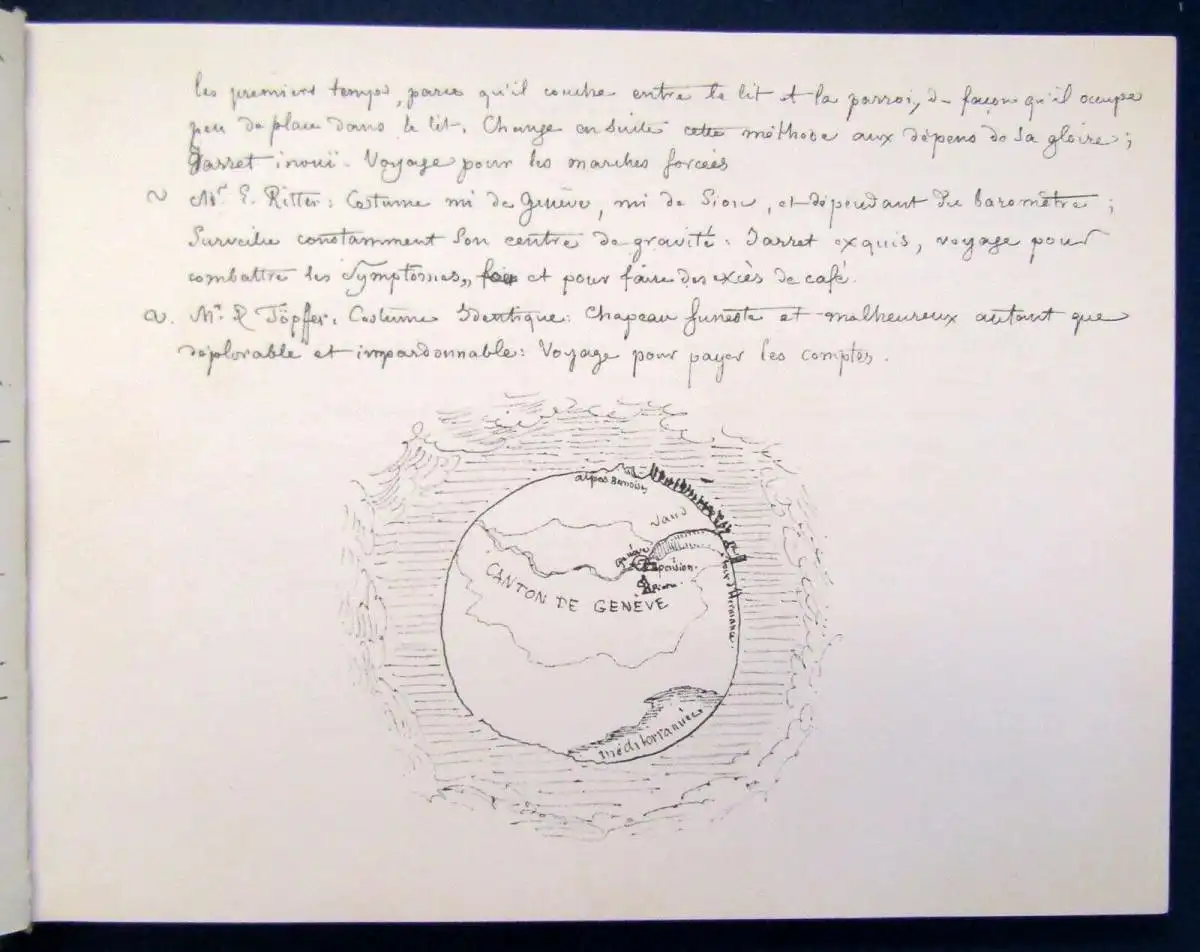 les premiers temps, parce qu'il couche entre le lit et la parroi, de façon qu'il occupe
peu de place dans le lit. Change ensuite cette méthode aux dépens de sa gloire ;
Jarret inouï. Voyage pour les marches forcées
Mr. E. Ritter : Costume mi de Genève, mi de Sion, et dépendant du baromètre ;
Surveille constamment son centre de gravité : Jarret exquis, voyage pour
combattre les symptômes, et pour faire des excès de café.
Mr. R Töpffer. Costume Identique : Chapeau funeste et malheureux autant que
déplorable et impardonnable : Voyage pour payer les comptes.
alpes Bernoises
Vaud
Genève
pension.
CANTON DE GENÈVE
Tour d'Hermance.
méditerrannée